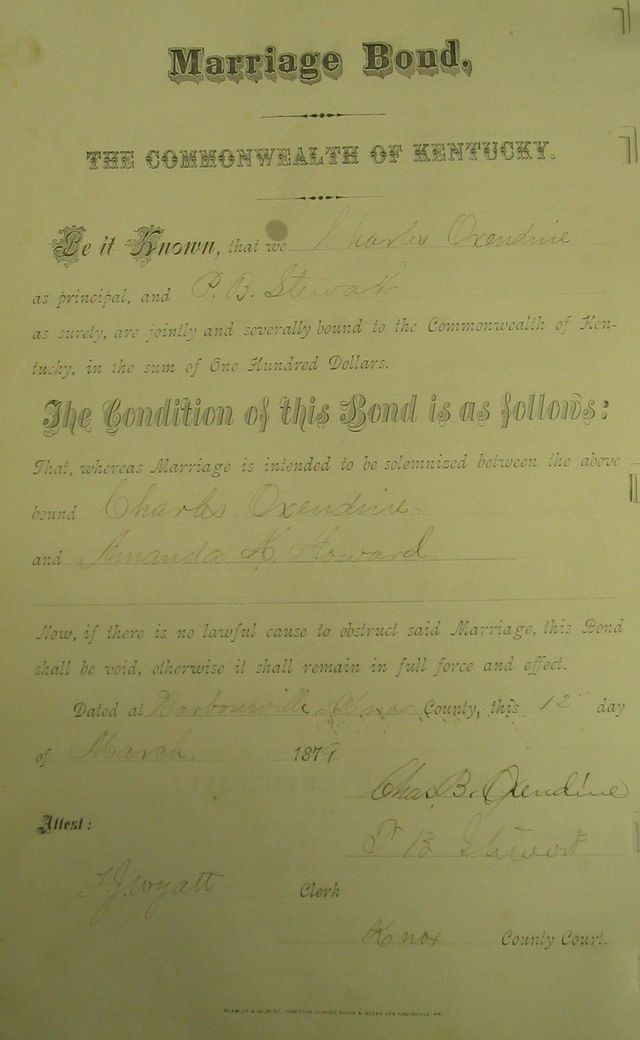 Marriage Bond.
THE COMMONWEALTH OF KENTUCKY.
Be it Known, that we Charles Oxendine
as principal, and P. B. Stewart
as surety, are jointly and severally bound to the Commonwealth of Ken-
tucky, in the sum of One Hundred Dollars.
The Condition of this Bond is as follows:
That, whereas Marriage is intended to be solemnized between the above
bound Charles Oxendine
and Amanda K. Howard.
Now, if there is no lawful cause to obstruct said Marriage, this Bond
shall be void, otherwise it shall remain in full force and effect.
Dated at Barbourville Knox County, this 12" day
of March. 1879
Chas. B. Oxendine
P B Stewart
Attest:
Wyatt Clerk
Knox County Court.